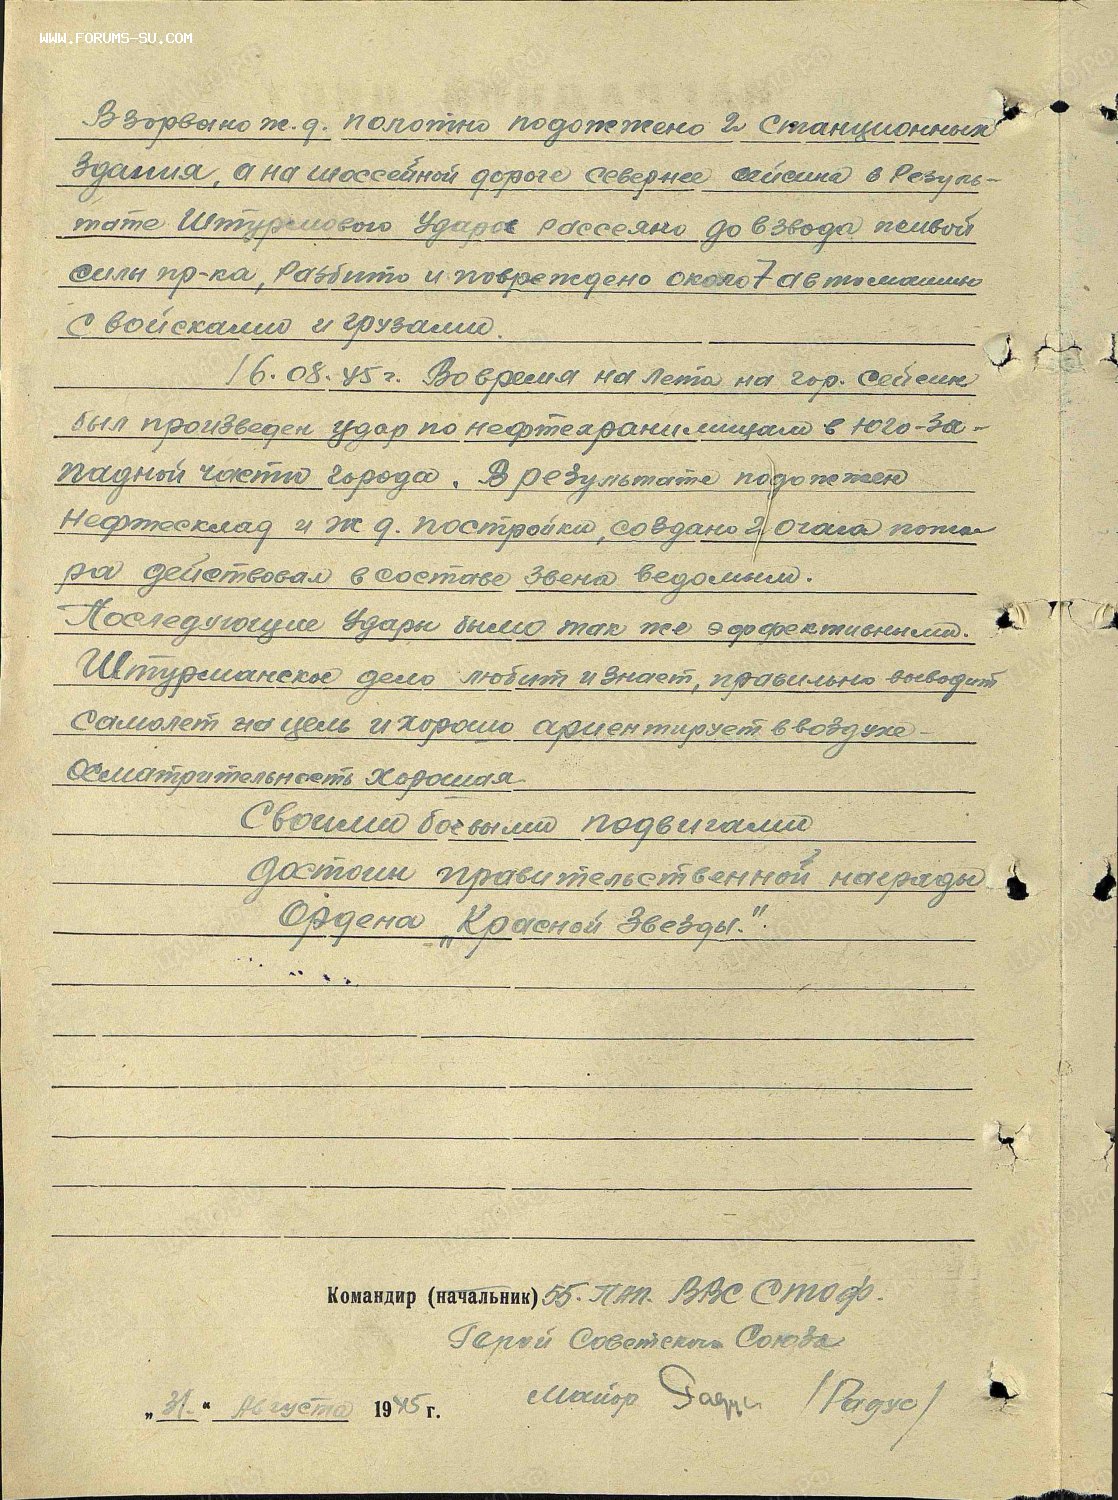 WWW.FORUMS-SU.COM
Взорвано ж.д. полотно подожжено 2 станционных
здания, а на шоссейной дороге севернее сейсина в резуль-
тате Штурмового Удара рассеяно до взвода живой
силы пр-ка, Разбито и повреждено около 7 автомашин
с войсками и грузами.
16.08.45г. Во время налета на гор. сейсин
был произведен удар по нефтехранилищам в юго-за-
падной части города. В результате подожжен
нефтесклад и ж д. постройки, создано 2 очага пожа-
ра действовал в составе звена ведомым.
Последующие Удары были так же эффективными.
Штурманское дело любит и знает, правильно выводит
самолет на цель и хорошо ориентирует в воздухе -
осматрительность хорошая
Своими боевыми подвигами
достоин правительственной награды
Ордена „Красной Звезды."
Командир (начальник) 55. Пап. ВВС Стоф.
Герой Советского Союза
Майор Радус /Радус/
„31." Августа 1945 г.